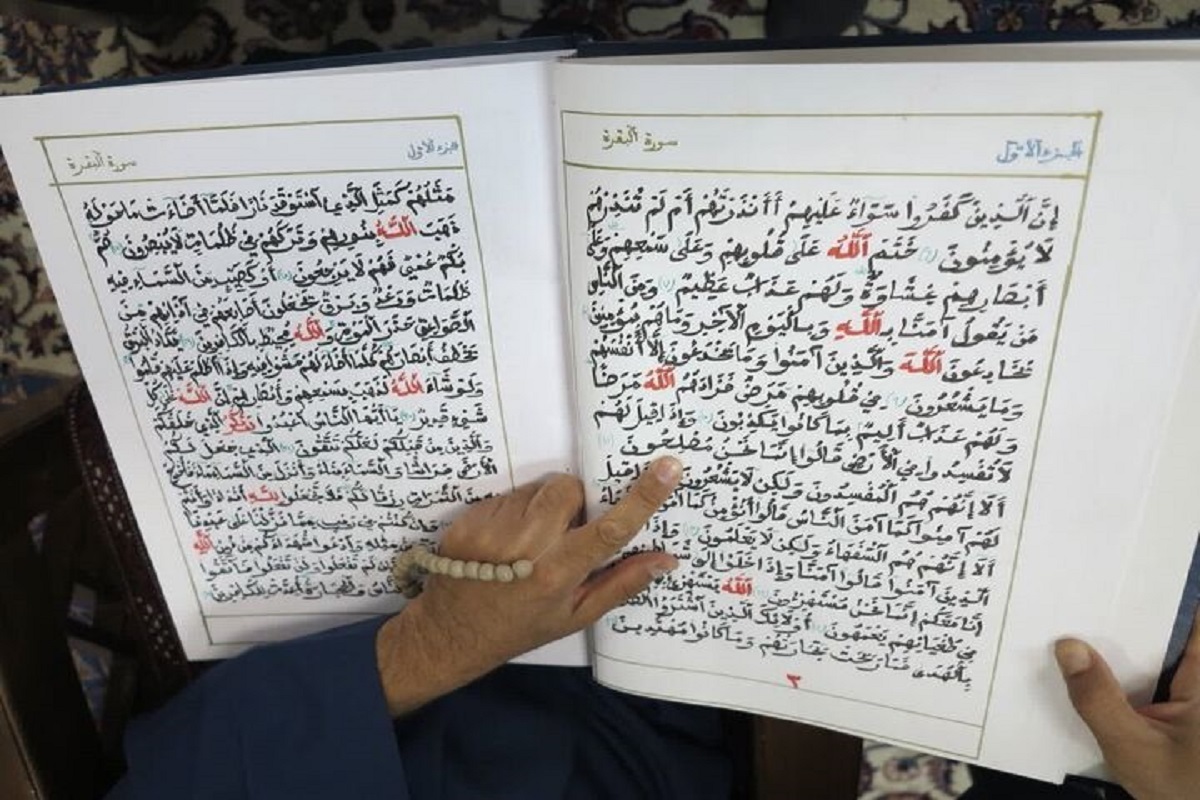 الجزء الأول
سورة البقرة
إِنَّ الَّذِينَ كَفَرُوا سَوَاءٌ عَلَيْهِمْ أَأَنذَرْتَهُمْ أَمْ لَمْ تُنذِرْهُمْ
لَا يُؤْمِنُونَ (٦) خَتَمَ اللَّهُ عَلَى قُلُوبِهِمْ وَعَلَى سَمْعِهِمْ وَعَلَى
أَبْصَارِهِمْ غِشَاوَةٌ وَلَهُمْ عَذَابٌ عَظِيمٌ (٧) وَمِنَ النَّاسِ
مَن يَقُولُ آمَنَّا بِاللَّهِ وَبِالْيَوْمِ الْآخِرِ وَمَا هُم بِمُؤْمِنِينَ
يُخَادِعُونَ اللَّهَ وَالَّذِينَ آمَنُوا وَمَا يَخْدَعُونَ إِلَّا أَنفُسَهُمْ
وَمَا يَشْعُرُونَ (٩) فِي قُلُوبِهِم مَّرَضٌ فَزَادَهُمُ اللَّهُ مَرَضًا
وَلَهُمْ عَذَابٌ أَلِيمٌ بِمَا كَانُوا يَكْذِبُونَ (١٠) وَإِذَا قِيلَ لَهُمْ
لَا تُفْسِدُوا فِي الْأَرْضِ قَالُوا إِنَّمَا نَحْنُ مُصْلِحُونَ (١١)
أَلَا إِنَّهُمْ هُمُ الْمُفْسِدُونَ وَلَكِن لَا يَشْعُرُونَ قِيلَ
لَهُمْ آمِنُوا كَمَا آمَنَ النَّاسُ قَالُوا أَنُؤْمِنُ كَمَا آمَنَ
أَلَا إِنَّهُمْ هُمُ السُّفَهَاءُ وَلَكِن لَا يَعْلَمُونَ (١٣) وَإِذَا
الَّذِينَ آمَنُوا قَالُوا آمَنَّا وَإِذَا خَلَوْا إِلَى
إِنَّا مَعَكُمْ إِنَّمَا نَحْنُ مُسْتَهْزِئُونَ (١٤) اللَّهُ يَسْتَهْزِئُ
فِي طُغْيَانِهِمْ يَعْمَهُونَ (١٥) أُولَئِكَ الَّذِينَ اشْتَرَوُا
بِالْهُدَى فَمَا رَبِحَت تِّجَارَتُهُمْ وَمَا كَانُوا مُهْتَدِينَ
٣
الجزء الأول
سورة البقرة
مَثَلُهُمْ كَمَثَلِ الَّذِي اسْتَوْقَدَ نَارًا فَلَمَّا أَضَاءَتْ مَا حَوْلَهُ
ذَهَبَ اللَّهُ بِنُورِهِمْ وَتَرَكَهُمْ فِي ظُلُمَاتٍ لَا يُبْصِرُونَ (١٧) صُمٌّ
بُكْمٌ عُمْيٌ فَهُمْ لَا يَرْجِعُونَ (١٨) أَوْ كَصَيِّبٍ مِنَ السَّمَاءِ فِيهِ
ظُلُمَاتٌ وَرَعْدٌ وَبَرْقٌ يَجْعَلُونَ أَصَابِعَهُمْ فِي آذَانِهِم مِنَ
الصَّوَاعِقِ حَذَرَ الْمَوْتِ وَاللَّهُ مُحِيطٌ بِالْكَافِرِينَ (١٩) يَكَادُ الْبَرْقُ
يَخْطَفُ أَبْصَارَهُمْ كُلَّمَا أَضَاءَ لَهُم مَّشَوْا فِيهِ وَإِذَا أَظْلَمَ عَلَيْهِمْ قَامُوا
وَلَوْ شَاءَ اللَّهُ لَذَهَبَ بِسَمْعِهِمْ وَأَبْصَارِهِمْ إِنَّ اللَّهَ عَلَى كُلِّ
شَيْءٍ قَدِيرٌ (٢٠) يَا أَيُّهَا النَّاسُ اعْبُدُوا رَبَّكُمُ الَّذِي خَلَقَكُمْ
وَالَّذِينَ مِن قَبْلِكُمْ لَعَلَّكُمْ تَتَّقُونَ (٢١) الَّذِي جَعَلَ لَكُمُ
الْأَرْضَ فِرَاشًا وَالسَّمَاءَ بِنَاءً وَأَنزَلَ مِنَ السَّمَاءِ
مِنَ الثَّمَرَاتِ رِزْقًا لَكُمْ فَلَا تَجْعَلُوا لِلَّهِ أَندَادًا وَأَنتُمْ
وَإِن كُنتُمْ فِي رَيْبٍ مِمَّا نَزَّلْنَا عَلَى عَبْدِنَا
مِثْلِهِ وَادْعُوا شُهَدَاءَكُم مِن دُونِ اللَّهِ
لَمْ تَفْعَلُوا وَلَن تَفْعَلُوا فَاتَّقُوا
النَّاسُ وَالْحِجَارَةُ أُعِدَّتْ لِلْكَافِرِينَ